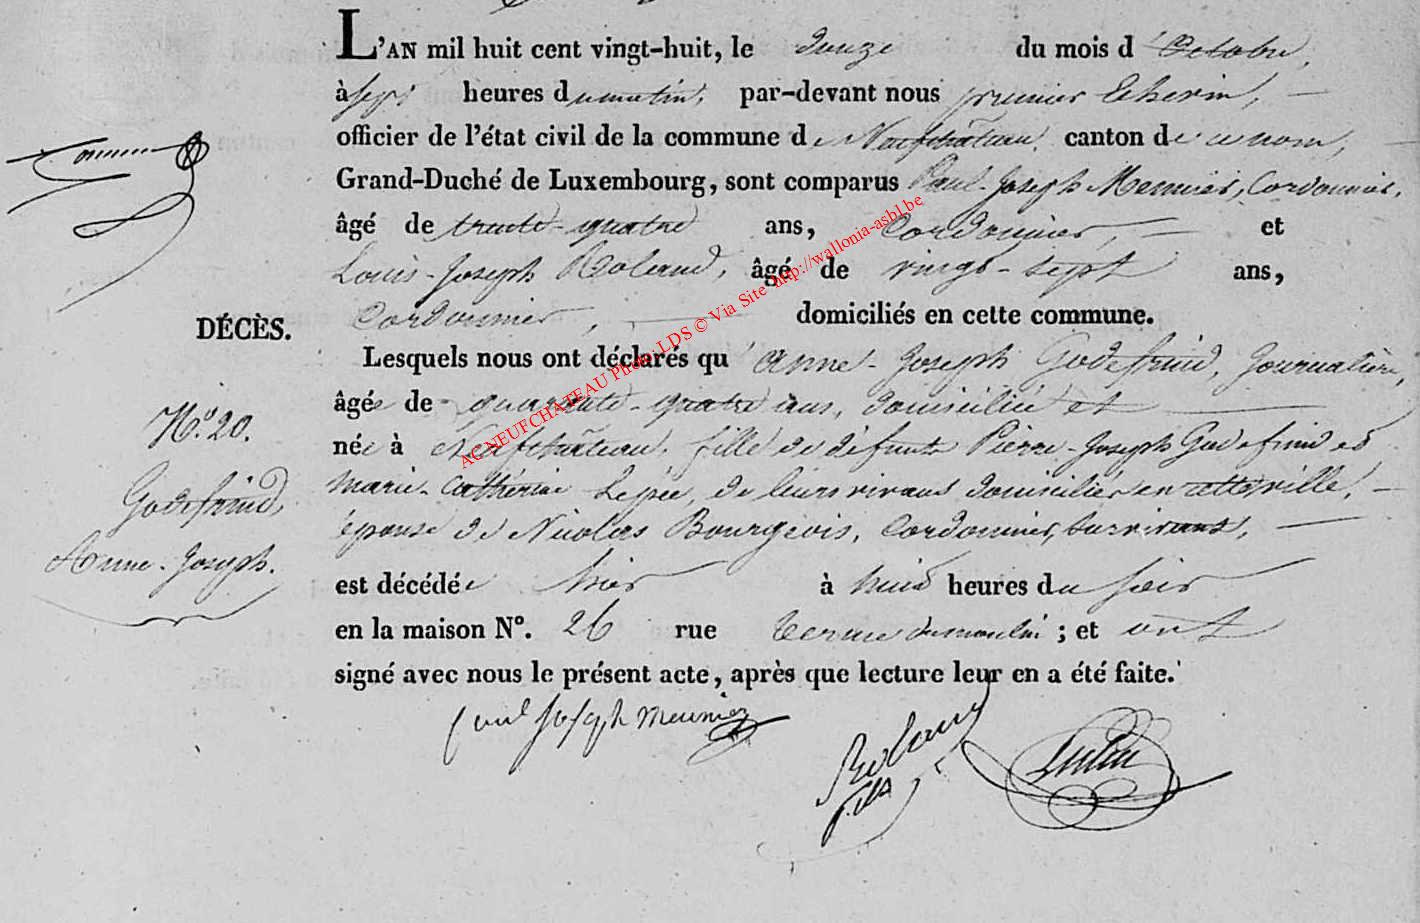 L'AN mil huit cent vingt-huit, le douze du mois d'Octobre,
à sept heures du matin, par-devant nous premier Echevin,
officier de l'état civil de la commune de Neufchâteau, canton de ce nom,
Grand-Duché de Luxembourg, sont comparus Paul-Joseph Meunier, Cordonnier,
âgé de trente-quatre ans, Cordonnier, et
Louis-Joseph Roland, âgé de vingt-sept ans,
Cordonnier, domiciliés en cette commune.
DÉCÈS.
Lesquels nous ont déclarés qu'Anne-Joseph Godefrind, Journalière,
âgée de quarante-quatre ans, domiciliée et
née à Neufchâteau, fille de défunts Pierre-Joseph Godefrind et
Marie-Catherine Lepée, de leurs vivans domiciliés en cette ville,
épouse de Nicolas Bourgeois, Cordonnier, survivant,
est décédée hier à huit heures du soir
en la maison N°. 26 rue Terme du moulin ; et ont
signé avec nous le présent acte, après que lecture leur en a été faite.
N°. 20.
Godefrind,
Anne-Joseph.
paul Joseph meunier
Roland
fils
AC NEUFCHATEAU Photo: LDS © Via Site http://wallonia-asbl.be